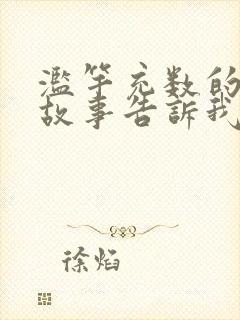 滥竽充数的
故事告訴我
徐焰